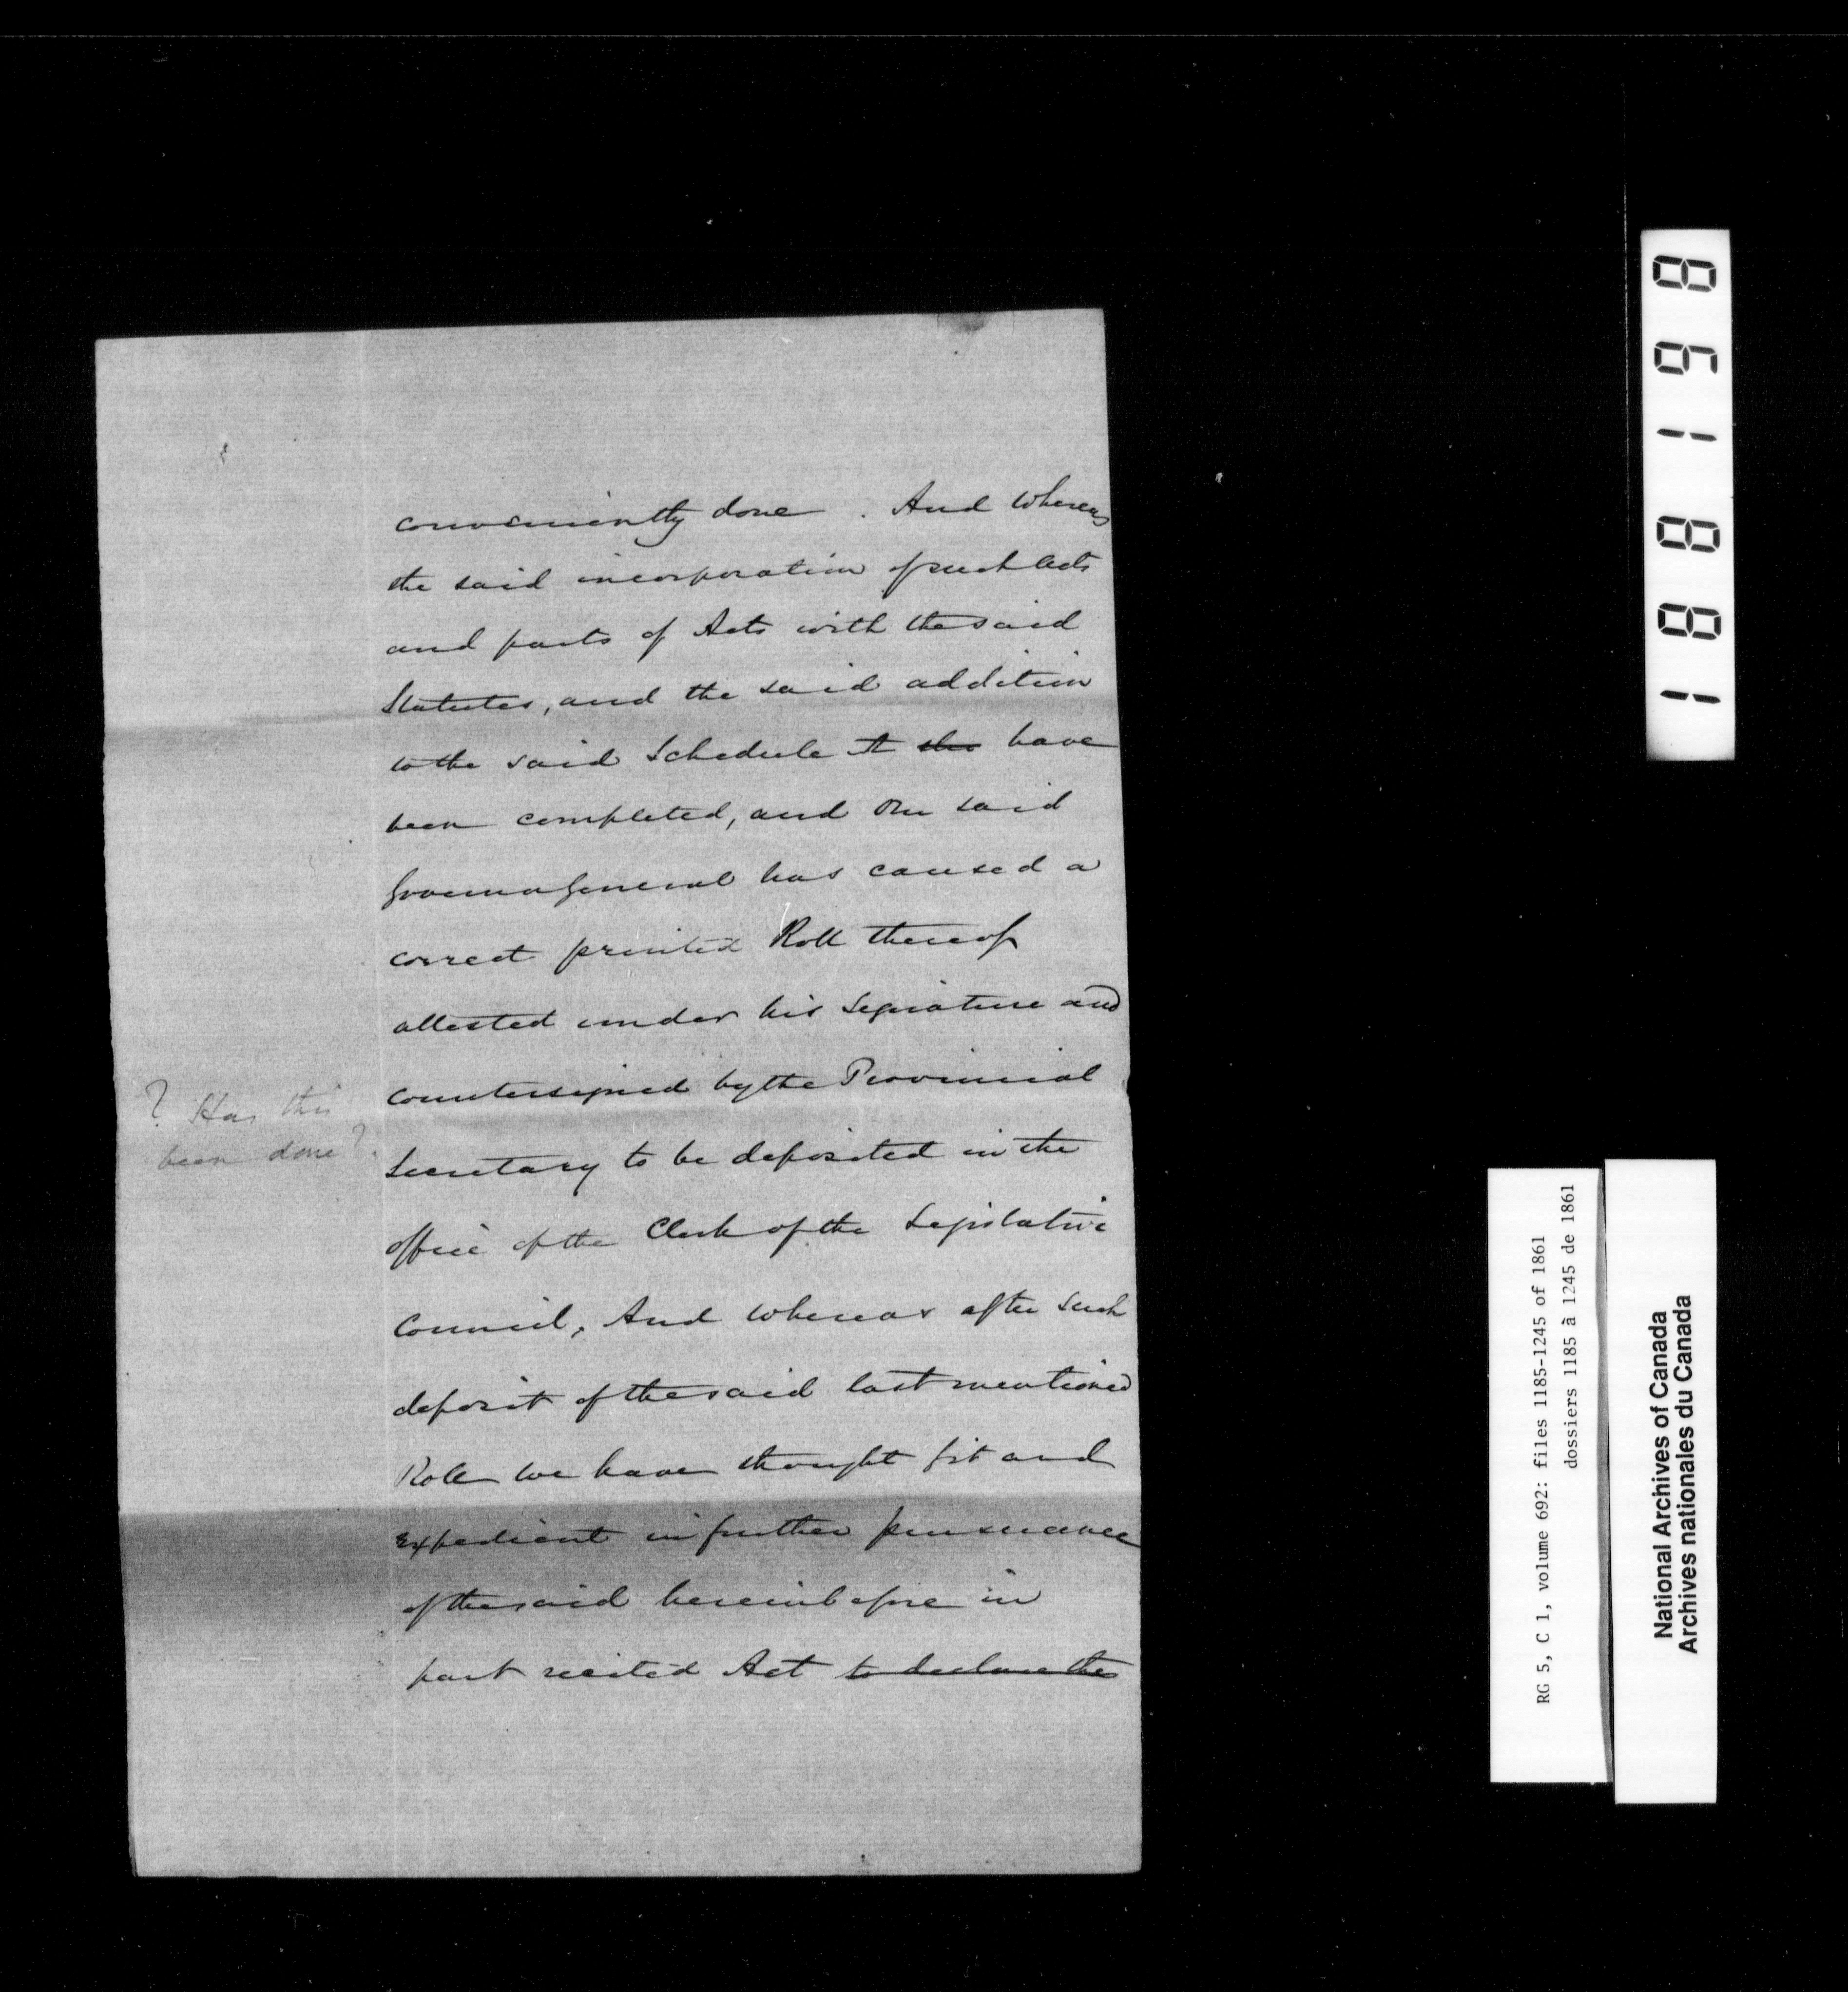 conveniently done. And Whereas
the said incorporation of such Acts
and parts of Acts with the said
Statutes, and the said addition
to the said Schedule A the have
been completed, and Our said
Governor General has caused a
correct printed Roll thereof
attested under his signature and
countersigned by the Provincial
Secretary to be deposited in the
office of the Clerk of the Legislative
Council, And Whereas after such
deposit of the said last mentioned
Roll we have thought fit and
expedient in further pursuance
of the said hereinbefore in
part recited Act to declare the
? Has this
been done?
188198
RG 5, C 1, volume 692: files 1185-1245 of 1861
dossiers 1185 à 1245 de 1861
National Archives of Canada
Archives nationales du Canada